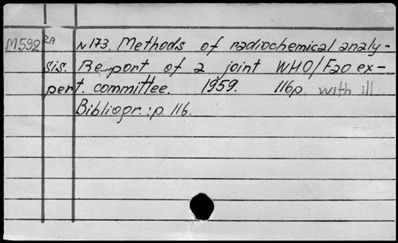 M592 RA N 173. Methods of radiochemical analy-
sis. Report of a joint WHO/Fao ex-
pert. committee. 1959. 116p with ill.
Bibliogr.: p. 116.